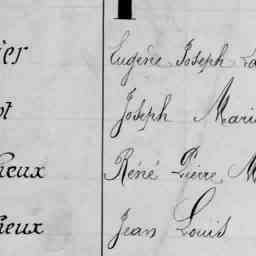 ier Eugène Joseph
ot Joseph Mari
heux Réné Pierre M
ieux Jean Louis